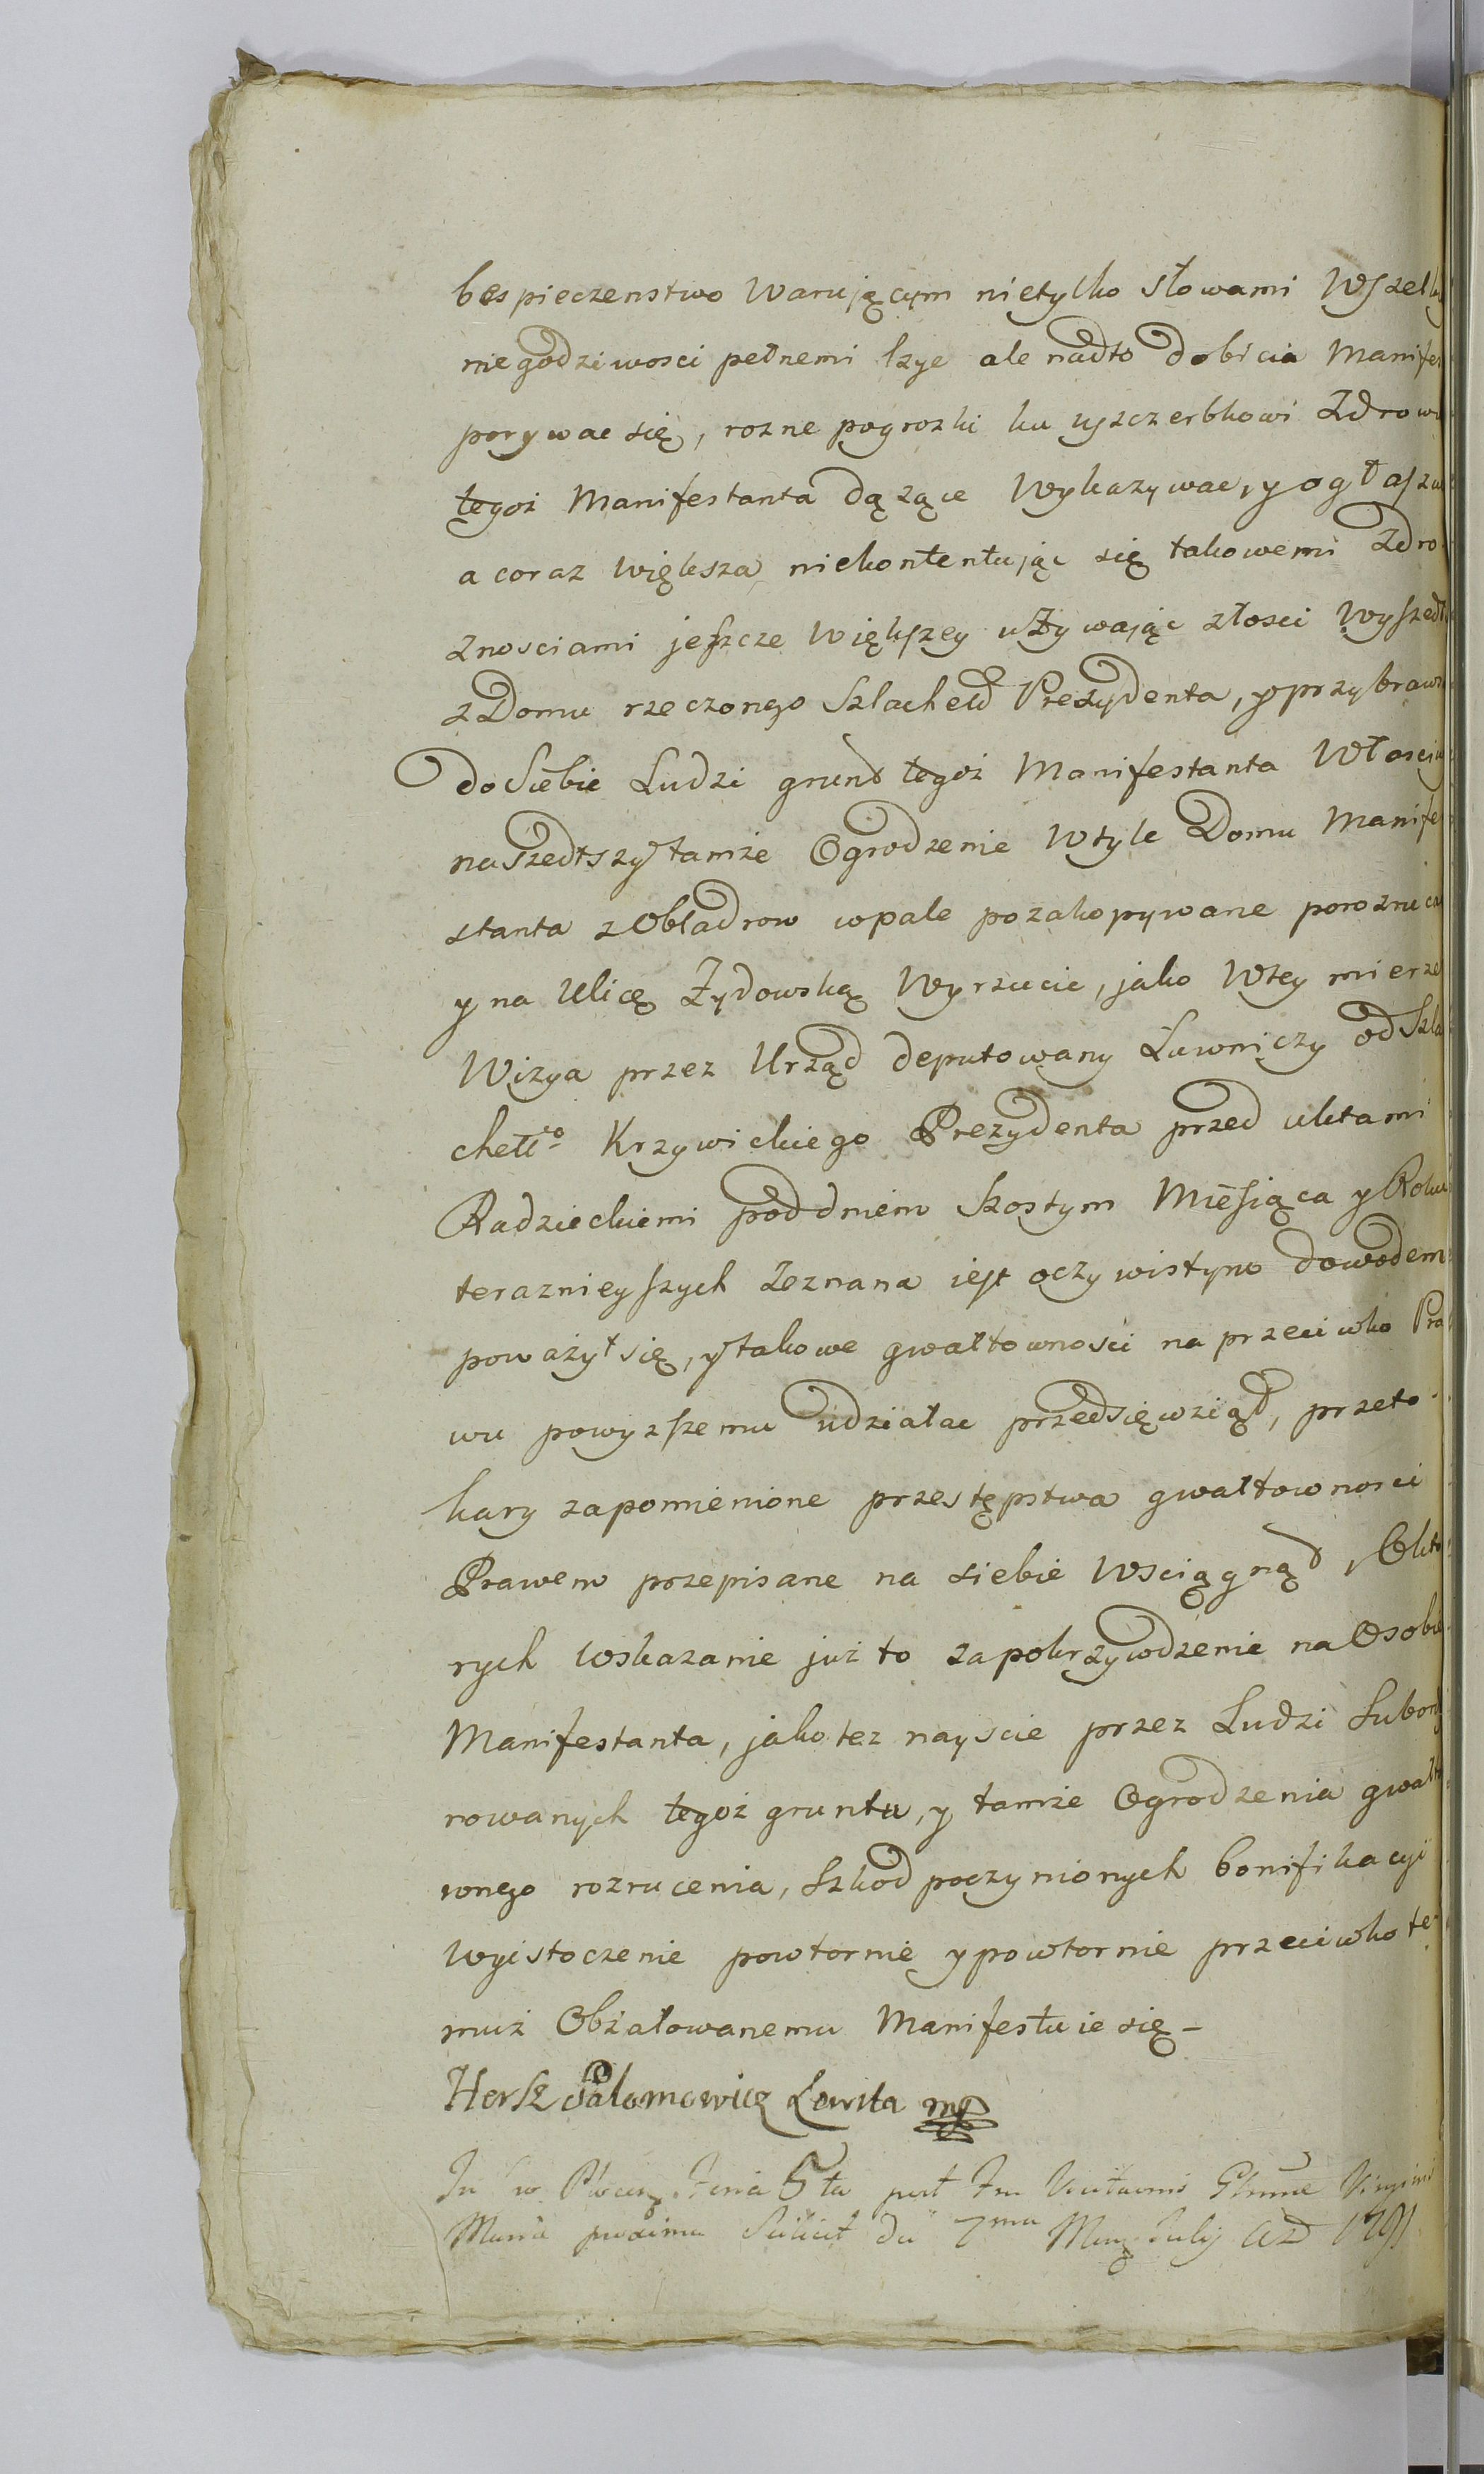 bespieczenstwo Warującym nietylko słowami Wszelk
niegodziwosci pełnemi lzye ale nadto dobicia Manifes
porywac się, rozne pogrozki ku uszczerbkowi Zdrow
tegoz Manifestanta dązące Wykazywac, y ogłasza
a coraz większa niekontentując się takowemi Zdro
znosciami jeszcze Większey uZywając złosci Wyszedł
z Domu rzeczonego Szlachetd Prezydenta, y przybraw
do Siebie Ludzi grunt tegoż Manifestanta Własc
naszedłszy tamże Ogrodzenie Wtyle Domu Manife
stanta z Obladrow wpale pozakopywane porozruca
y na Ulicę Żydowską Wyrzucic, jako Wtey mierze
Wizya przez Urząd deputowany Ławniczy od Szla
chettgo Krzywickiego Prezydenta przed aktami
Radzieckiemi pod dniem Szostym Miesiąca y Roku
terazniey szych Zeznana iest oczywistym dowodem
poważył się, y takowe gwałtownosci na przeciwko Pra
wu powyzszemu udziałac przedsięwziął, przeto
kary zapomienione przestępstwa gwałtownosci
Prawem przepisane na siebie Wsciągnął, Okto
rych wskazanie już to zapokrzywdzenie na Osobie
Manifestanta, jakotez nayscie przez Ludzi Subor
rowanych tegoż gruntu, y tamże Ogrodzenia gwałto
wnego rozrucenia, Szkod poczynionych bonifikacyi
wyistoczenie powtornie y powtornie przeciwko te
muż Obżałowanemu Manifestuie się -
Hersz Salomowicz Lewita mp
Feria 5ta post Virginis
Maria proxima Scilicet die 7ma Mens Julij AD 1791